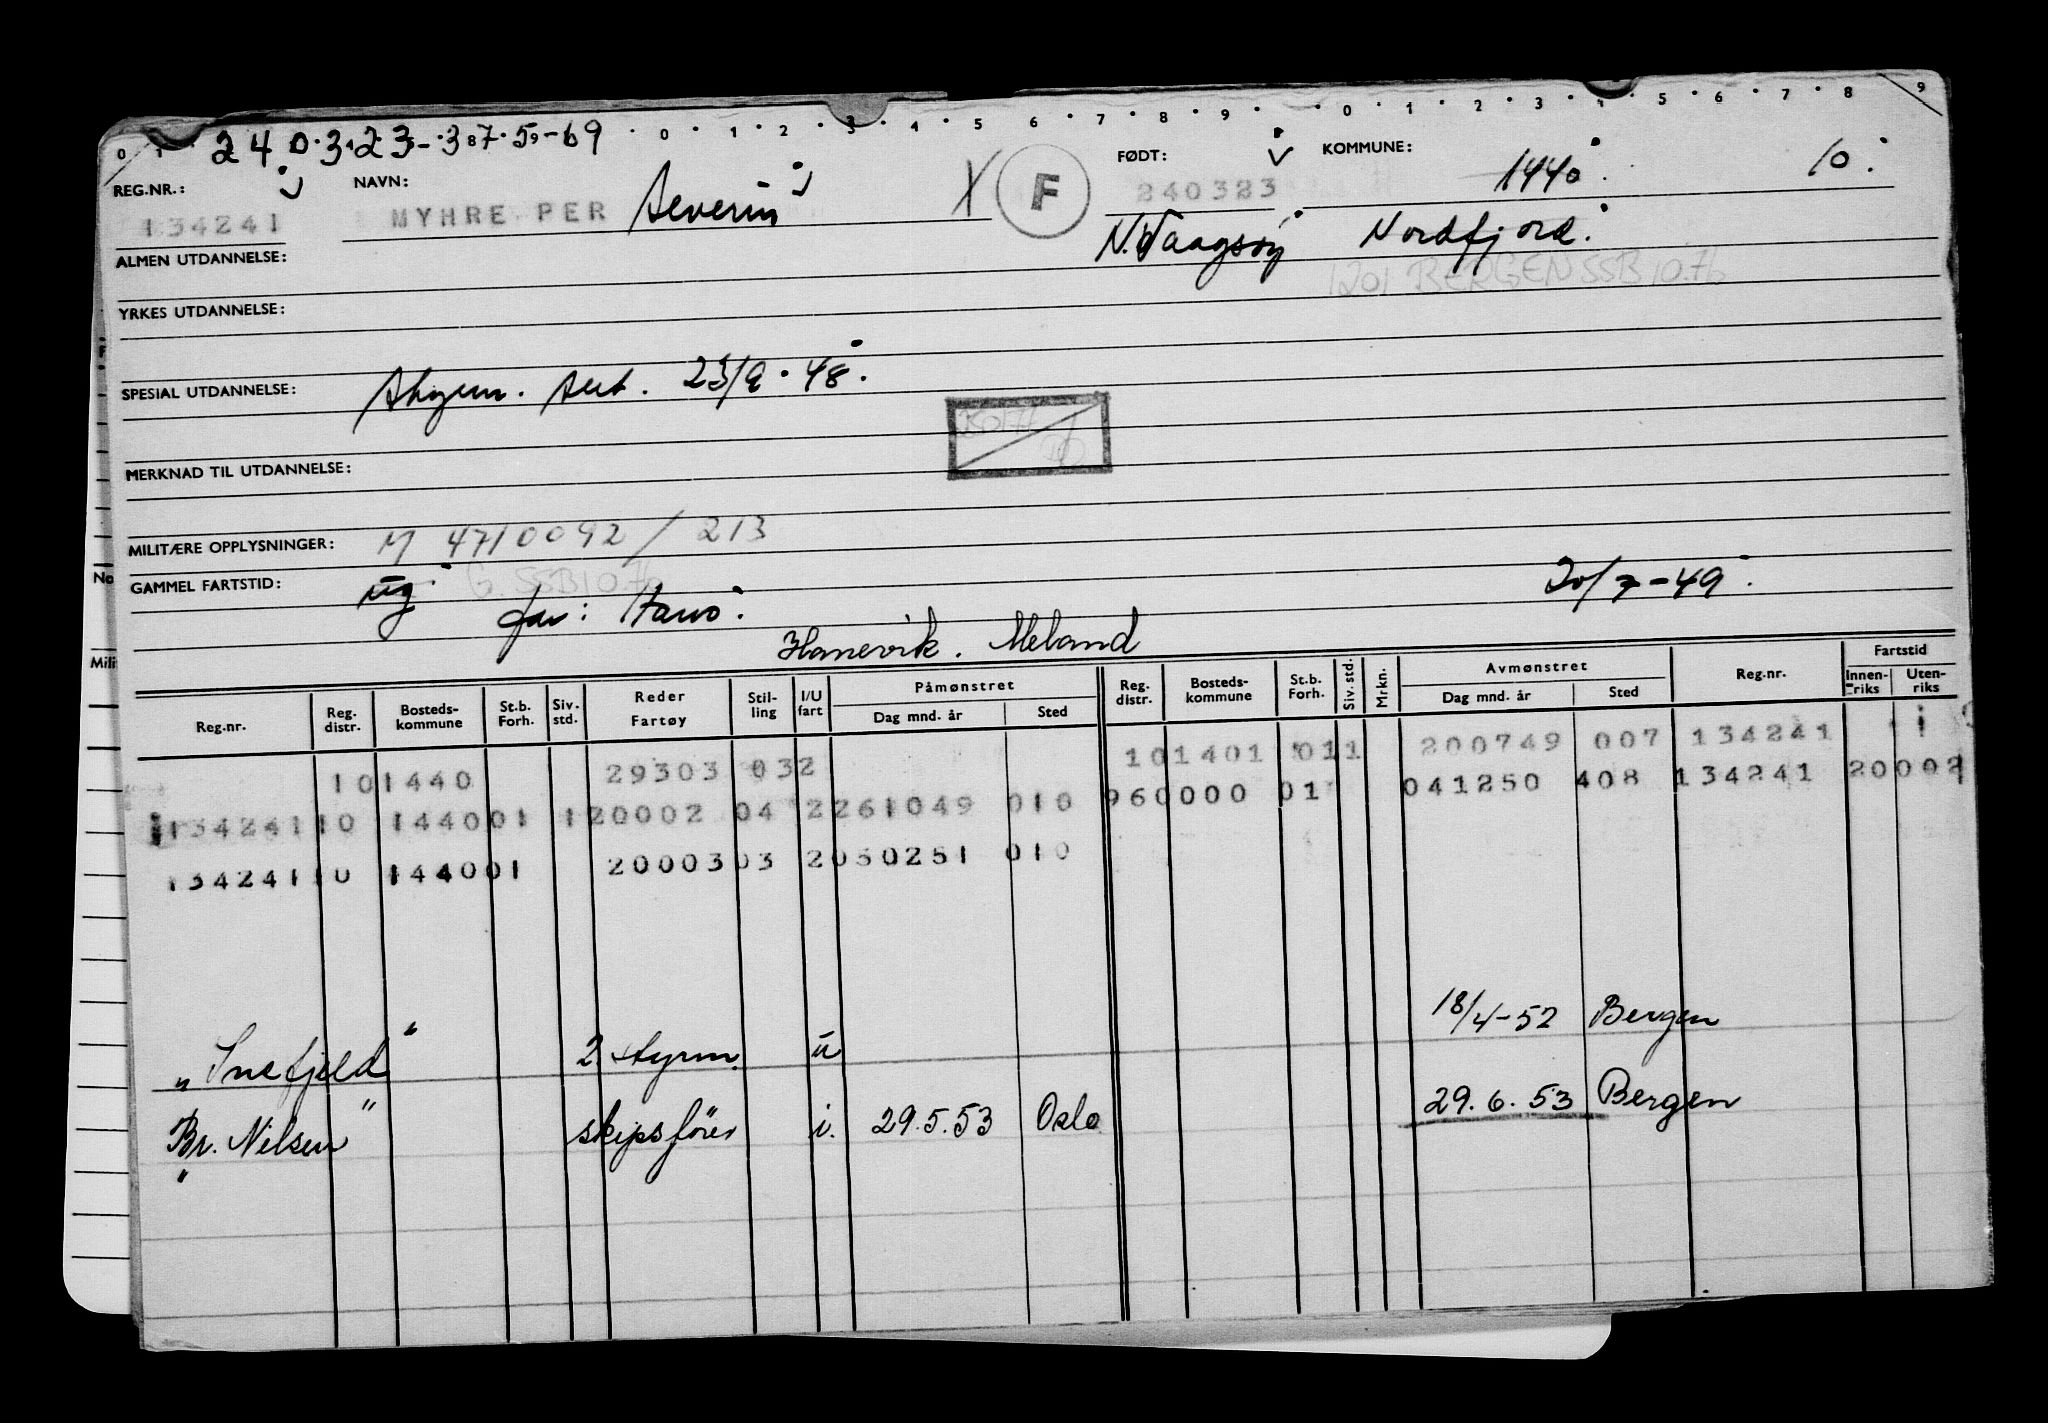 0 1 2 3 4 5 6 7 8 9 0 1 2 3 4 5 6 7 8 9
240323-37569
REG.NR.: NAVN: FØDT: KOMMUNE: 1440 10
134241 MYHRE PER Severin X F 240323
N. Vaagsøy Nordfjord
ALMEN UTDANNELSE: 1201 BERGEN SSB 10.76
YRKES UTDANNELSE:
SPESIAL UTDANNELSE: Styrm. Sert. 23/9-48.
MERKNAD TIL UTDANNELSE:
MILITÆRE OPPLYSNINGER: M 4710092/213
GAMMEL FARTSTID: ug G. SSB 10.76 20/7-49
far: Hans
Hanevik. Meland
Reg.nr. Reg. distr. Bosteds- kommune St.b. Forh. Siv. std. Reder Fartøy Stil- ling I/U fart Påmønstret Dag mnd. år Sted Reg. distr. Bosteds- kommune St.b. Forh. Siv. std. Mrkn. Avmønstret Dag mnd. år Sted Reg.nr. Fartstid Innen- riks Uten- riks
101440 29303 032 101401 011 200749 007 134241
134241 10 144001 120002 04 2 261049 010 960000 01 041250 408 134241 20002
134241 10 144001 20003 03 2 050251 010
„Snefjeld" 2 styrm. u 18/4-52 Bergen
"Br. Nilsen" skipsfører i. 29.5.53 Oslo 29.6.53 Bergen